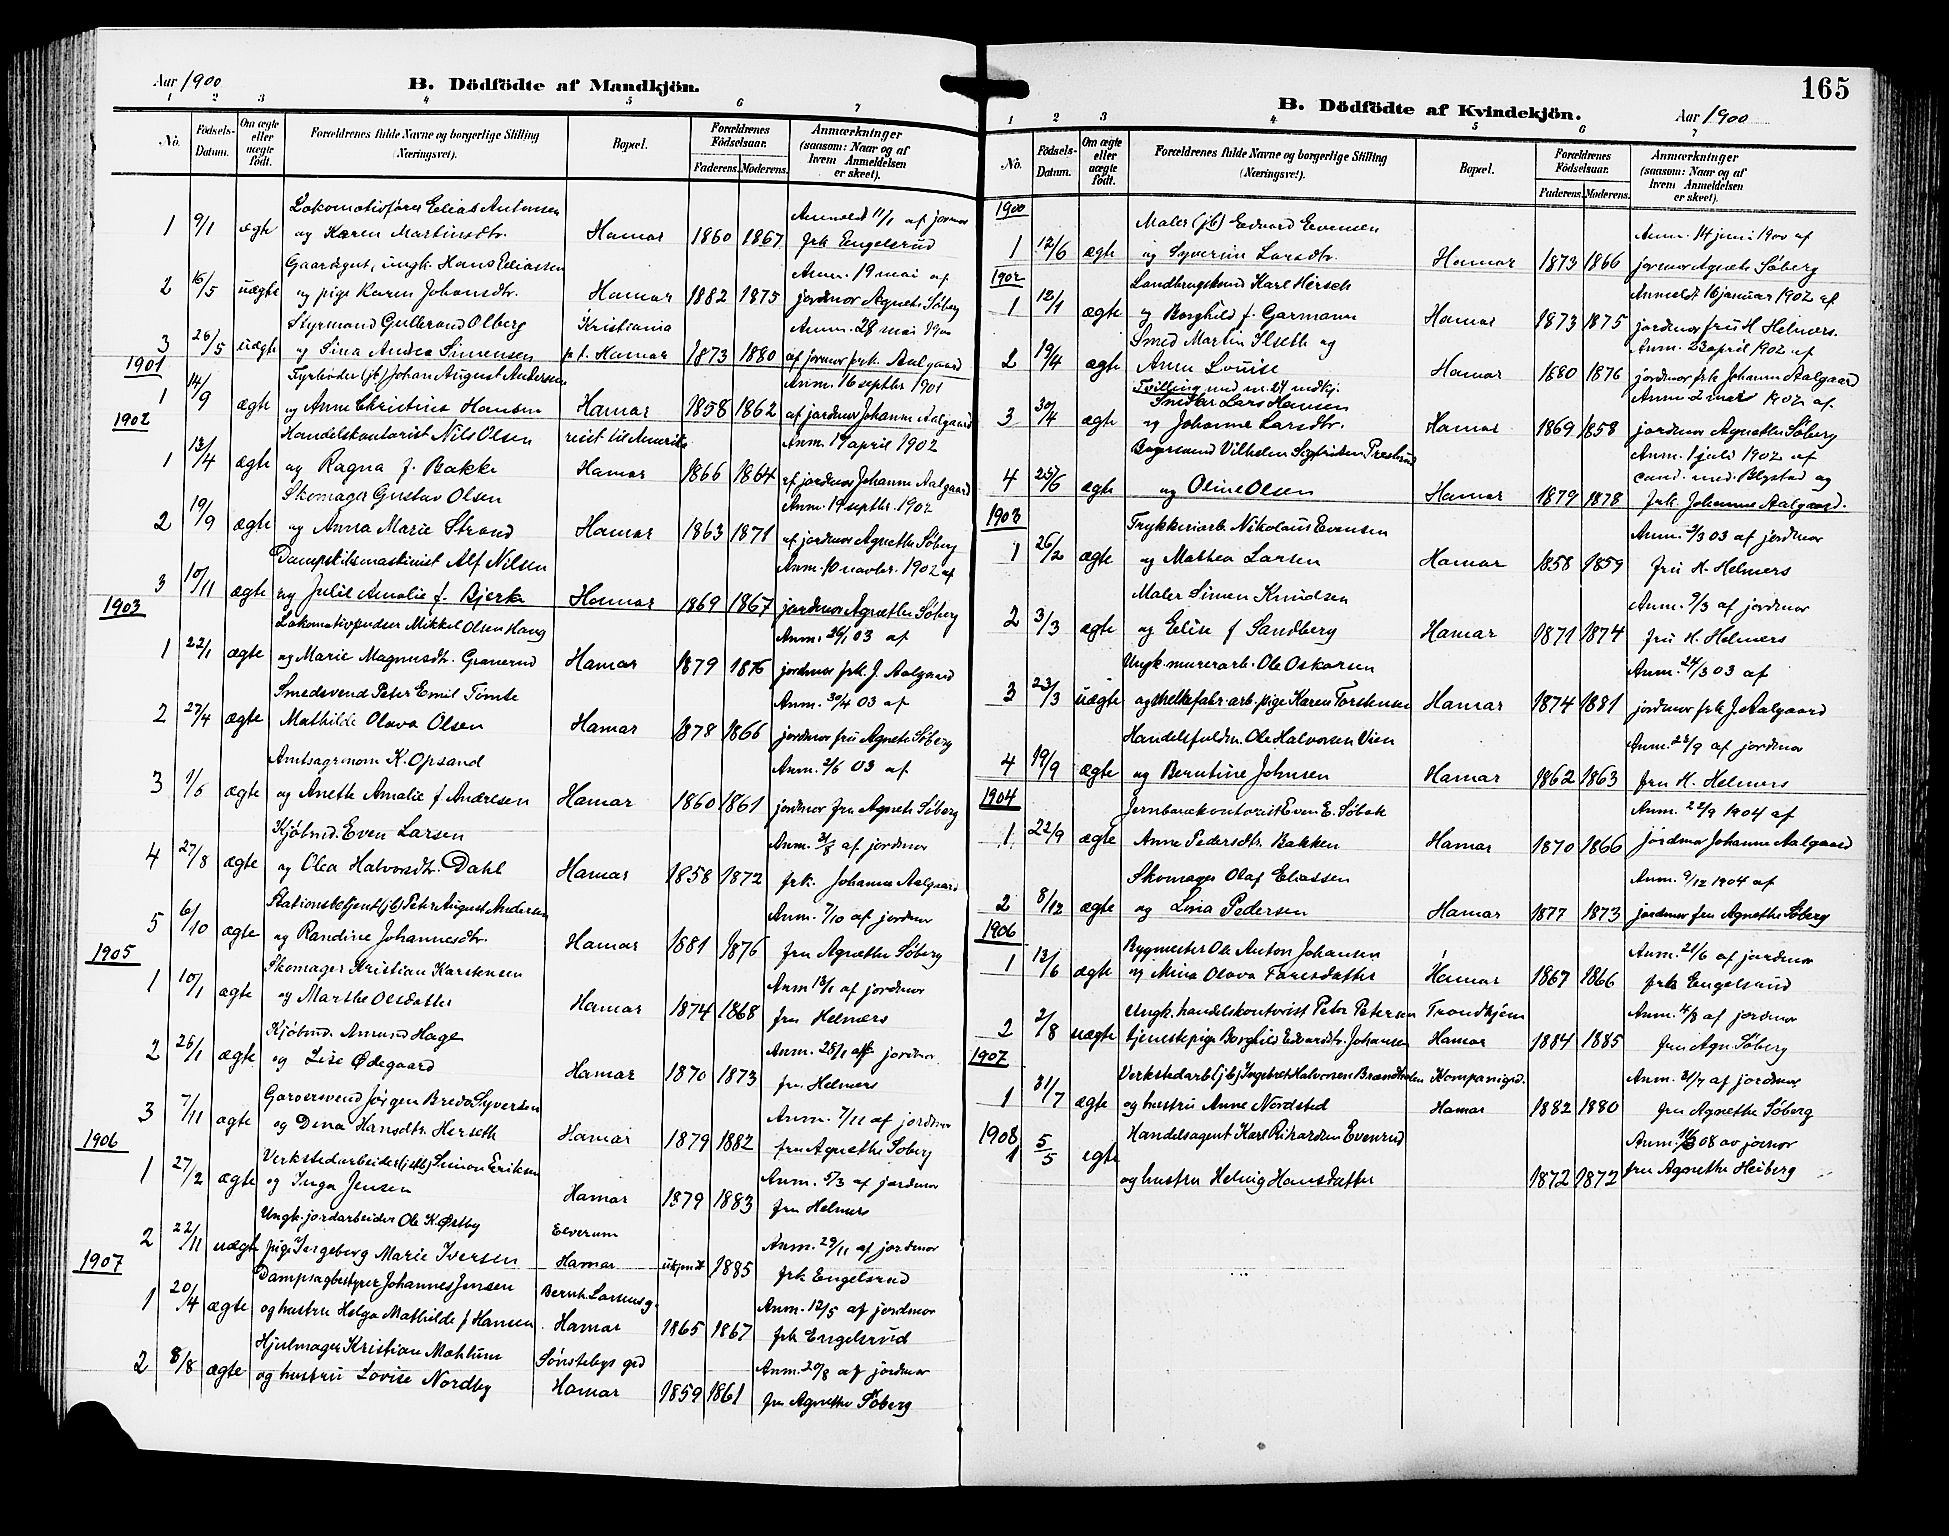 Aar 1900
B. Dödfödte af Mandkjön.
1 2 3 4 5 6 7
No. Födsels-Datum. Om ægte eller uægte födt. Forældrenes fulde Navne og borgerlige Stilling (Næringsvei). Bopæl. Forældrenes Födselsaar. Faderens. Moderens. Anmærkninger (saasom: Naar og af hvem Anmeldelsen er skeet).
Lokomotivfører Elias Antonsen Anmeldt 11/1 af jormor
1 9/1 ægte og Karen Martinsdtr. Hamar 1860 1867 frk Engelsrud
Gaardsgut, ungk. Hans Eliassen Anm. 19 mai af
2 16/5 uægte og pige Karen Johansdtr. Hamar 1882 1875 jordmor Agnethe Søberg
Styrmand Gulbrand Olberg Kristiania Anm. 28 mai 1900
3 26/5 uægte og Sina Andrea Simensen p.t. Hamar 1873 1880 af jormor frk. Aalgaard
1901
Fyrbøder (jb) Johan August Andersen Anm. 16 septbr. 1901
1 14/9 ægte og Anne Christine Hansen Hamar 1858 1862 af jordmor Johanne Aalgaard
1902
Handelskontorist Nils Olsen reist til Amerika Anm. 14 april 1902
1 13/4 ægte og Ragna f. Bakke Hamar 1866 1864 af jordmor Johanne Aalgaard
Skomager Gustav Olsen Anm. 19 septbr. 1902
2 19/9 ægte og Anna Marie Strand Hamar 1863 1871 af jordmor Agnethe Søberg
Alf Nilsen Anm. 10 novbr. 1902 af
3 10/11 ægte og Julie Amalie f. Bjerke Hamar 1869 1867 jordmor Agnethe Søberg
1903
Lokomotivpudser Mikkel Olsen Haug Anm. 26/1 03 af
1 22/1 ægte og Marie Magnusdtr. Granerud Hamar 1879 1876 jordmor frk. J. Aalgaard
Smedsvend Peter Emil Tomte Anm. 30/4 03 af
2 27/4 ægte Mathilde Olava Olsen Hamar 1878 1866 jordmor fru Agnethe Søberg
Amtsagronom K. Opsand Anm. 2/6 03 af
3 1/6 ægte og Anette Amalie f Andresen Hamar 1860 1861 jordmor fru Agnethe Søberg
Kjøbmd. Even Larsen Anm. 31/8 af jordmor
4 27/8 ægte og Olea Halvorsdtr. Dahl Hamar 1858 1872 frk. Johanne Aalgaard
Stationsbetjent (jb) Petr August Andersen Anm. 7/10 af jordmor
5 6/10 ægte og Randine Johannesdtr. Hamar 1881 1876 fru Agnethe Søberg
1905
Skomager Kristian Karstensen Anm 13/1 af jordmor
1 10/1 ægte og Marthe Olsdatter Hamar 1874 1868 fru Helmers
Kjøbmd. Amund Hage Anm. 28/1 af jordmor
2 26/1 ægte og Lise Ødegaard Hamar 1870 1873 fru Helmers
Garversvend Jørgen Bredo Syversen Anm. 7/11 af jordmor
3 7/11 ægte og Dina Hansdtr. Herseth Hamar 1879 1882 fru Agnethe Søberg
1906
Verkstedarbeider Simon Eriksen Anm. 5/3 af jordmor
1 27/2 ægte og Inga Jensen Hamar 1879 1883 fru Helmers
Ungk. jordarbeider Ole K. Østby Elverum Anm. 29/11 af jordmor
2 22/11 uægte pige Ingeborg Marie Iversen Hamar ukjendt 1885 frk Engelsrud
1907
Dampsagbestyrer Johannes Jensen Bernh. Larsens g.
1 20/4 ægte og hustru Helga Mathilde f Hansen Hamar 1865 1867 Anm. 12/5 af jordmor frk Engelsrud
Hjulmager Kristian Mæhlum Sønstebys grd Anm. 20/8 af jordmor
2 8/8 ægte og hustru Lovise Nordby Hamar 1859 1861 fru Agnethe Søberg
165
B. Dödfödte af Kvindekjön.
Aar 1900
1 2 3 4 5 6 7
No. Födsels-Datum. Om ægte eller uægte födt. Forældrenes fulde Navne og borgerlige Stilling (Næringsvei). Bopæl. Forældrenes Födselsaar. Faderens. Moderens. Anmærkninger (saasom: Naar og af hvem Anmeldelsen er skeet).
1900
Maler (jb) Edvard Evensen Anm. 14 juni 1900 af
1 12/6 ægte og Syverine Larsdtr. Hamar 1873 1866 jormor Agnethe Søberg
1902
Landbrugskand Karl Hirsch Anmeldt 16 januar 1902 af
1 12/1 ægte og Borghild f. Garmann Hamar 1873 1875 jordmor fru H. Helmers.
Smed Martin Ilseth og Anm. 23 april 1902 af
2 19/4 ægte Anne Louise Hamar 1880 1876 jordmor frk Johanne Aalgaard
Tvilling med nr. 54 mdkj.
Snedker Lars Hansen Anm. 2 mars 1902 af.
3 30/4 ægte og Johanne Larsdtr. Hamar 1869 1858 jordmor Agnethe Søberg
Vilhelm Anm. 1 juli 1902 af
cand. med. og
4 25/6 ægte og Oline Olsen Hamar 1879 1878 frk. Johanne Aalgaard.
1903
Trykkeriarb Nikolaus Evensen Anm. 3/3 03 af jordmor
1 26/2 ægte og Mathea Larsen Hamar 1858 1859 fru H. Helmers
Maler Simen Knudsen Anm. 9/3 af jordmor
2 3/3 ægte og Elise f Sandberg Hamar 1871 1874 fru H. Helmers
Ungk. murerarb. Ole Oskarsen Anm. 24/3 03 af
3 23/3 uægte og melkefabr. arb. pige Karen Torstensen Hamar 1874 1881 jordmor frk J. Aalgaard
Handelsfuldm. Ole Halvorsen Vien Anm. 22/9 af jordmor
4 19/9 ægte og Berntine Johnsen Hamar 1862 1863 fru H. Helmers
1904
Jernbanekontorist Even E. Søbak Anm. 22/9 1904 af
1 22/9 ægte Anne Pedersdtr. Bakken Hamar 1870 1866 jordmor Johanne Aalgaard
Skomager Olaf Eliassen Anm. 9/12 1904 af
2 8/12 ægte og Lina Pedersen Hamar 1877 1873 jordmor fru Agnethe Søberg
1906
Bygmester Ole Anton Johansen Anm. 21/6 af jordmor
1 13/6 ægte og Mina Olava Hamar 1867 1866 frk Engelsrud
Ungk. handelskontorist Peter Petersen Trondhjem Anm. 4/8 af jordmor
2 2/8 uægte tjenestepige Borghild Edvardtr. Johansen Hamar 1884 1885 fru Agn. Søberg
1907
Verkstedarb (jb) Ingebret Halvorsen Brændholen Kompanigrd. Anm. 31/7 af jordmor
1 31/7 ægte og hustru Anne Nordsted Hamar 1882 1880 fru Agnethe Søberg
1908 Handelsagent Karl Rikardsen Evenrud
1 5/5 egte og hustru Helvig Hansdatter 1872 1872 fru Agnethe Heiberg